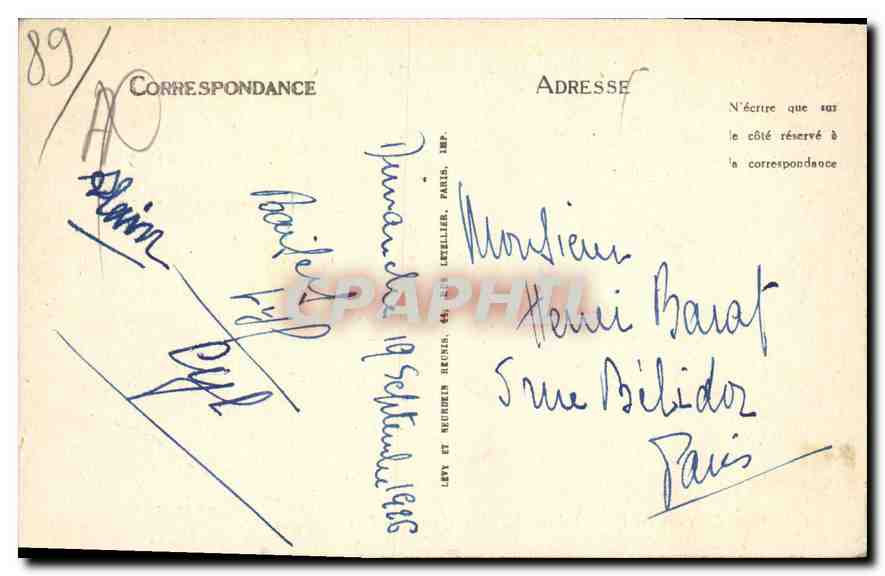 89/
CORRESPONDANCE
ADRESSE
N'écrire que sur
le côté réservé à
la correspondance
Dimanche 19 Septembre 1926
LÉVY ET NEURDEIN RÉUNIS, 44, RUE LETELLIER, PARIS, IMP.
Monsieur
Henri Barat
5 rue Bélidor
Paris
CPAPHIL